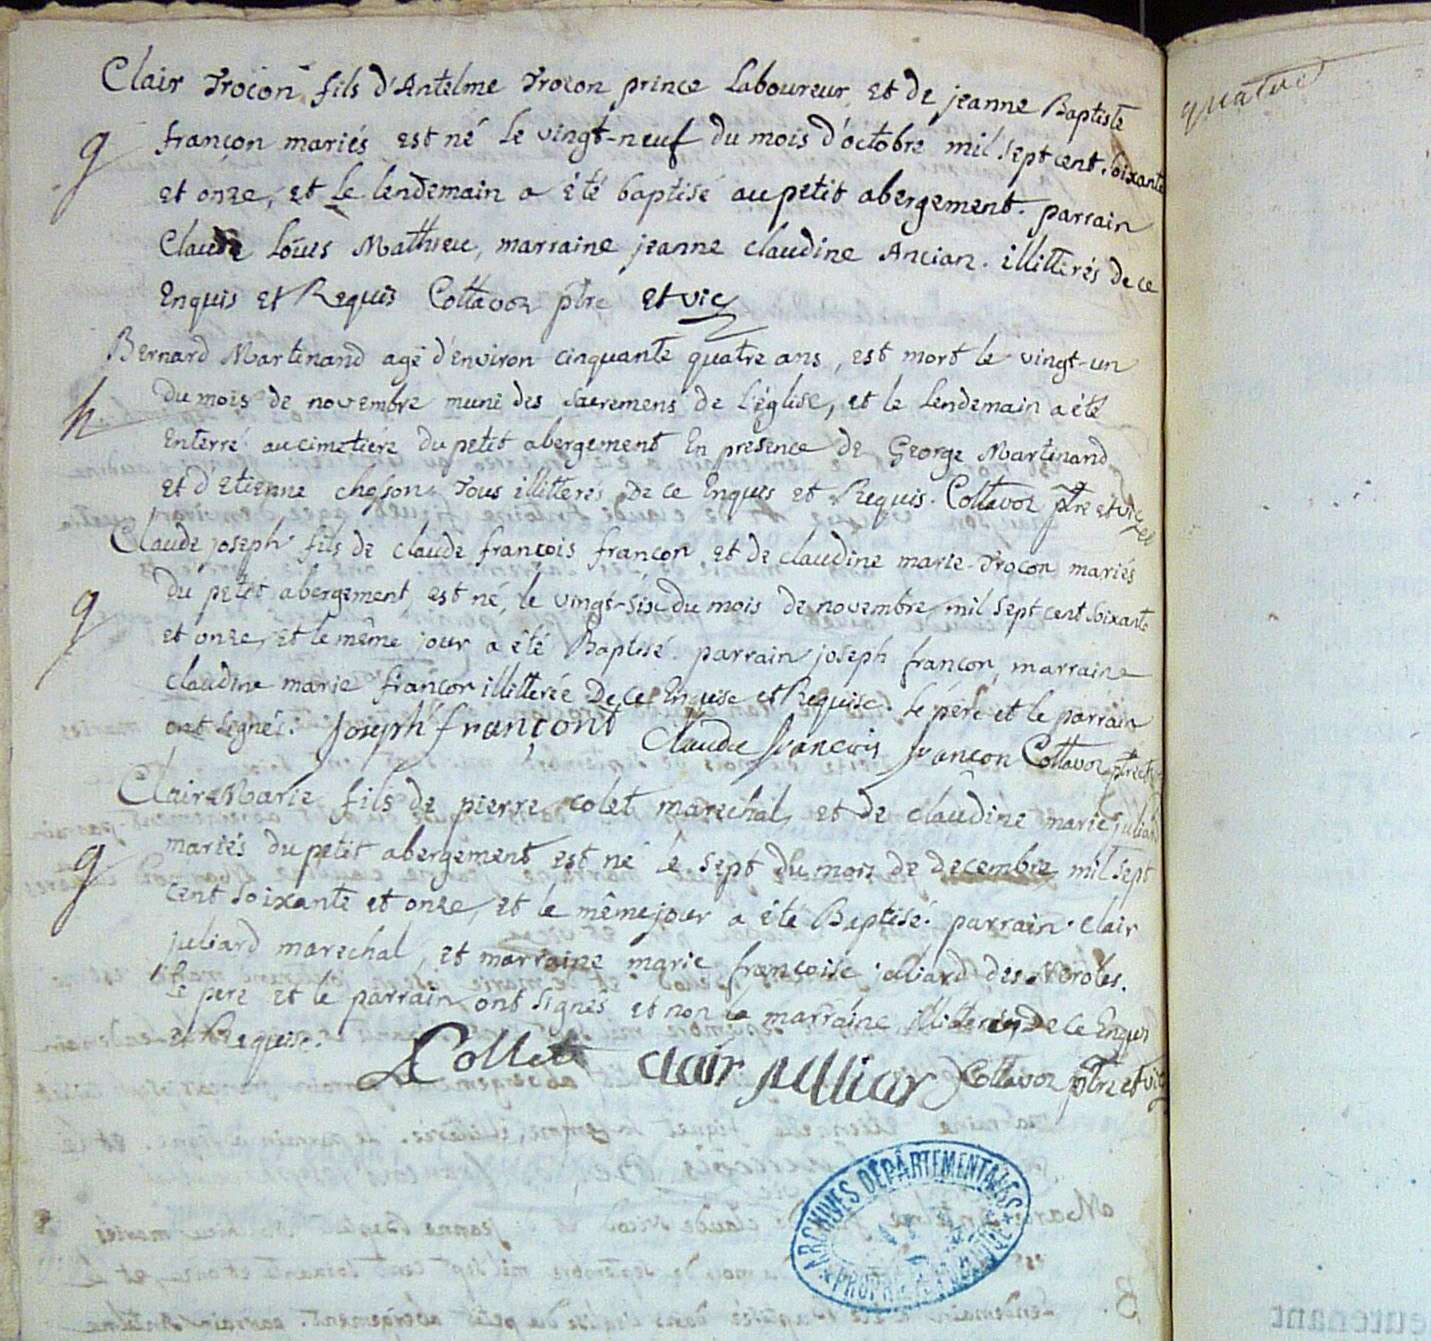 Clair Trocon fils d'Antelme Trocon prince Laboureur, et de jeanne Baptiste
françon mariés est né le vingt-neuf du mois d'octobre mil sept cent soixante
g
et onze, et le lendemain a été baptisé au petit abergement. parrain
Claude Loüis Mathieu, marraine jeanne claudine Ancian. illitterés de ce
Enquis et Requis Cottavoz ptre et vic
Bernard Martinand agé d'environ cinquante quatre ans, est mort le vingt-un
du mois de novembre muni des sacremens de l'église, et le lendemain a été
h
Enterré au cimetiére du petit abergement En presence de George Martinand
et d'etienne choson tous illitterés de ce Enquis et Requis. Cottavoz ptre et vic
Claude joseph fils de claude françois françon et de claudine marie Trocon mariés
du petit abergement est né, le vingt-six du mois de novembre mil sept cent soixante
g
et onze, et le même jour a été Baptisé. parrain joseph françon, marraine
claudine marie françon illitterée de ce Enquise et Requise. Le pére et le parrain
ont signés. Joseph françont Claude francois françon Cottavoz ptre et
Clair-Marie fils de pierre colet marechal, et de claudine marie juliard
mariés du petit abergement est né le sept du mois de decembre mil sept
g
cent soixante et onze, et le même jour a été Baptisé. parrain clair
juliard marechal, et marraine marie françoise juliard des Neyroles.
Le pere et le parrain ont signés et non la marraine illiterée de ce Enquise
et Requise. Collet clair julliar Cottavoz ptre et vic
ARCHIVES DÉPARTEMENTALES
PROPRIÉTÉ PUBLIQUE
quatre